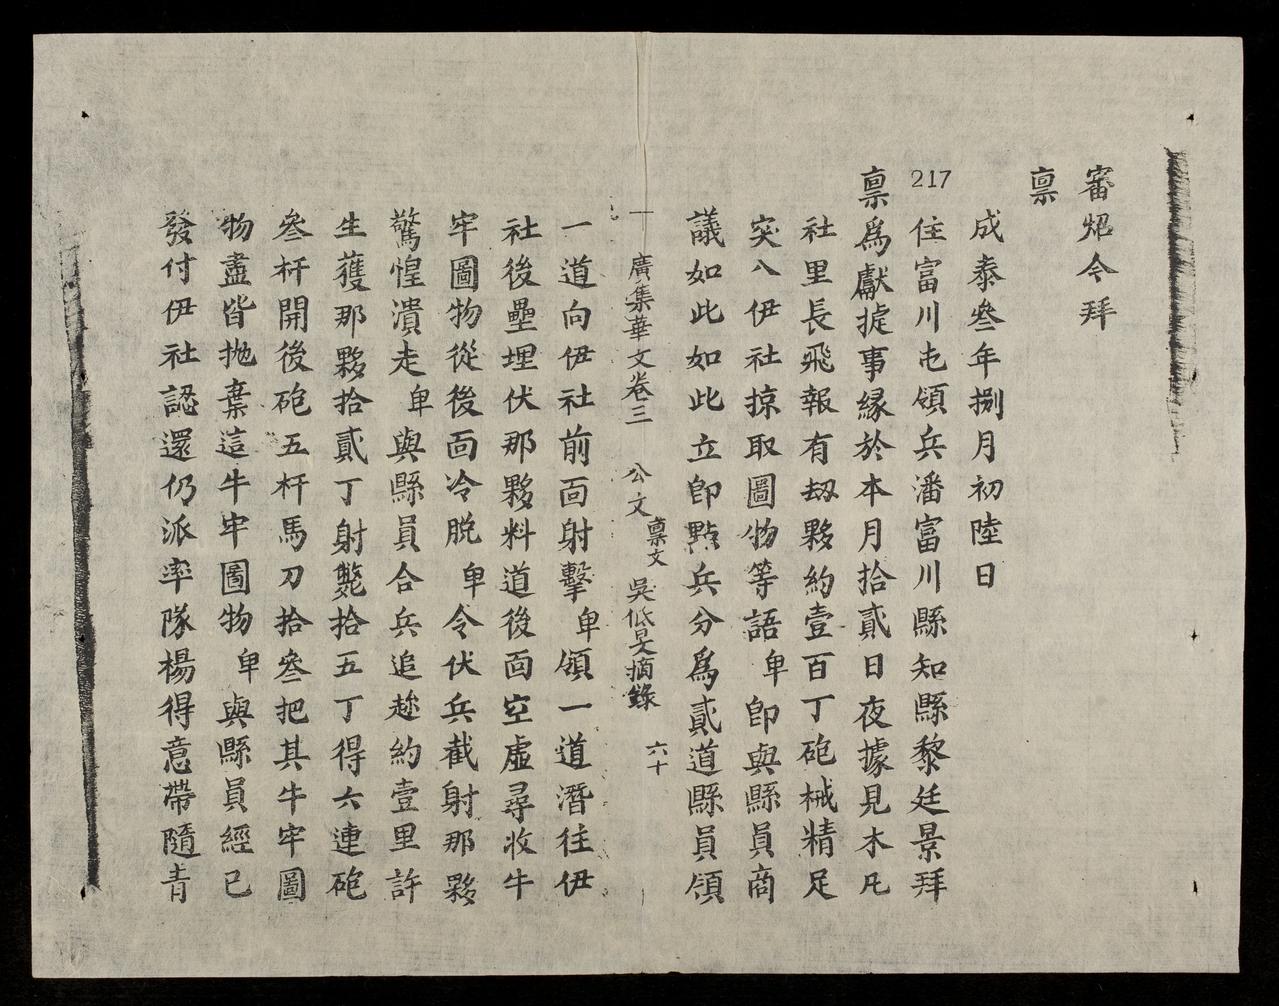 審炤今拜
禀
成泰叄年捌月初陸日
217
住富川屯領兵潘富川縣知縣黎廷景拜
禀爲獻𢫝事緣於本月拾貳日夜據見木凡
社里長飛報有刼夥約壹百丁砲械精足
突入伊社掠取圖物等語卑卽與縣員商
議如此如此立卽點兵分爲貳道縣員領
廣集華文卷三 公文 禀文 吳低旻摘錄 六十
一道向伊社前面射擊卑領一道潛往伊
社後壘埋伏那夥料道後面空虛尋收牛
牢圖物從後面冷脫卑令伏兵截射那夥
驚惶潰走卑與縣員合兵追趂約壹里許
生獲那夥拾貳丁射斃拾五丁得六連砲
叄杆開後砲五杆馬刀拾叄把其牛牢圖
物盡皆抛棄這牛牢圖物卑與縣員經已
發付伊社認還仍派率隊楊得意帶隨青